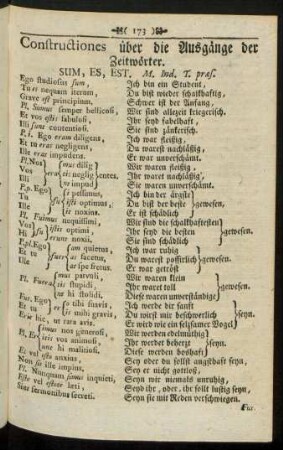 ( 173 )
Constructiones über die Ausgänge der
Zeitwörter.
SUM, ES, EST. M. Ind. T. præs.
Ego studiosus sum, Ich bin ein Student,
Tu es nequam iterum, Du bist wieder schalkhaftig,
Grave est principium. Schwer ist der Anfang.
Pl. Sumus semper bellicosi, Wir sind allezeit kriegerisch.
Et vos estis fabulosi, Ihr seyd fabelhaft,
Illi sunt contentiosi. Sie sind zänkerisch.
P. i. Ego eram diligens, Ich war fleißig,
Et tu eras negligens, Du warest nachläßig,
Ille erat impudens. Er war unverschämt.
Pl. Nos eramus dilig Wir waren fleißig,
Vos eratis neglig entes. Ihr waret nachläßig,
Illi erant impud Sie waren unverschämt.
P.p. Ego Ich bin der ärgste
Tu optimus, Du bist der beste gewesen.
Ille noxius. Er ist schädlich
Pl. Fuimus nequissimi, Wir sind die schalkhaftesten
Vos optimi, Ihr seyd die besten gewesen.
Hi noxii. Sie sind schädlich
P.pl. Ego quietus, Ich war ruhig
Et tu facetus, Du warest possierlich gewesen.
Ille spe fretus. Er war getröst
parvuli Wir waren klein
Pl. Fuera stupidi, Ihr waret toll gewesen.
hi stolidi. Diese waren unverständige
Fut. Ego ero tibi suavis, Ich werde dir sanft
Et tu eris mihi gravis, Du wirst mir beschwerlich seyn.
Erit hic, ut rara avis. Er wird wie ein seltzamer Vogel
nos generosi, Wir werden edelmüthig
Pl. Er vos animosi, Ihr werdet beherzt seyn.
hi malitiosi, Diese werden boshaft
Et vel esto anxius, Sey oder du sollst angsthaft seyn,
Non sit ille impius. Sey er nicht gottlos,
Pl. Nunquam simus inquieti, Seyn wir niemals unruhig,
Este vel estote læti, Seyd ihr, oder, ihr sollt lustig seyn,
Sint sermonibus secreti. Seyn sie mit Reden verschwiegen.
Fut.